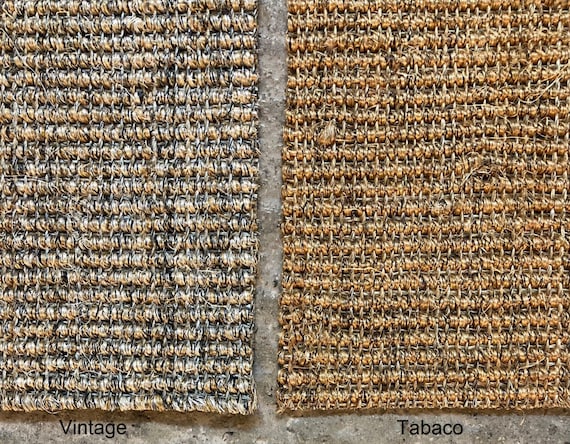 Vintage
Tabaco